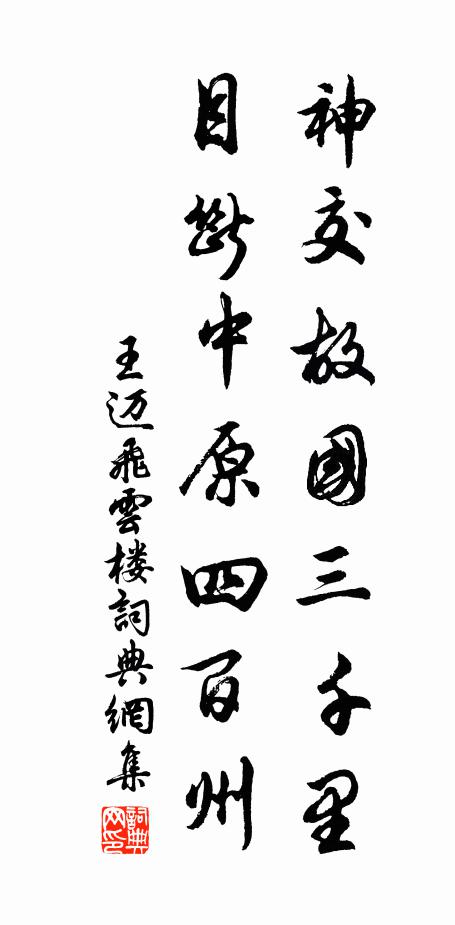 神交故國三千里
目斷中原四百州
王迈飛雲楼詞典網集
詞典网印